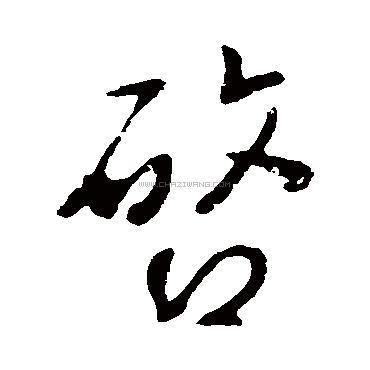 啓
WWW.CHAZIWANG.COM